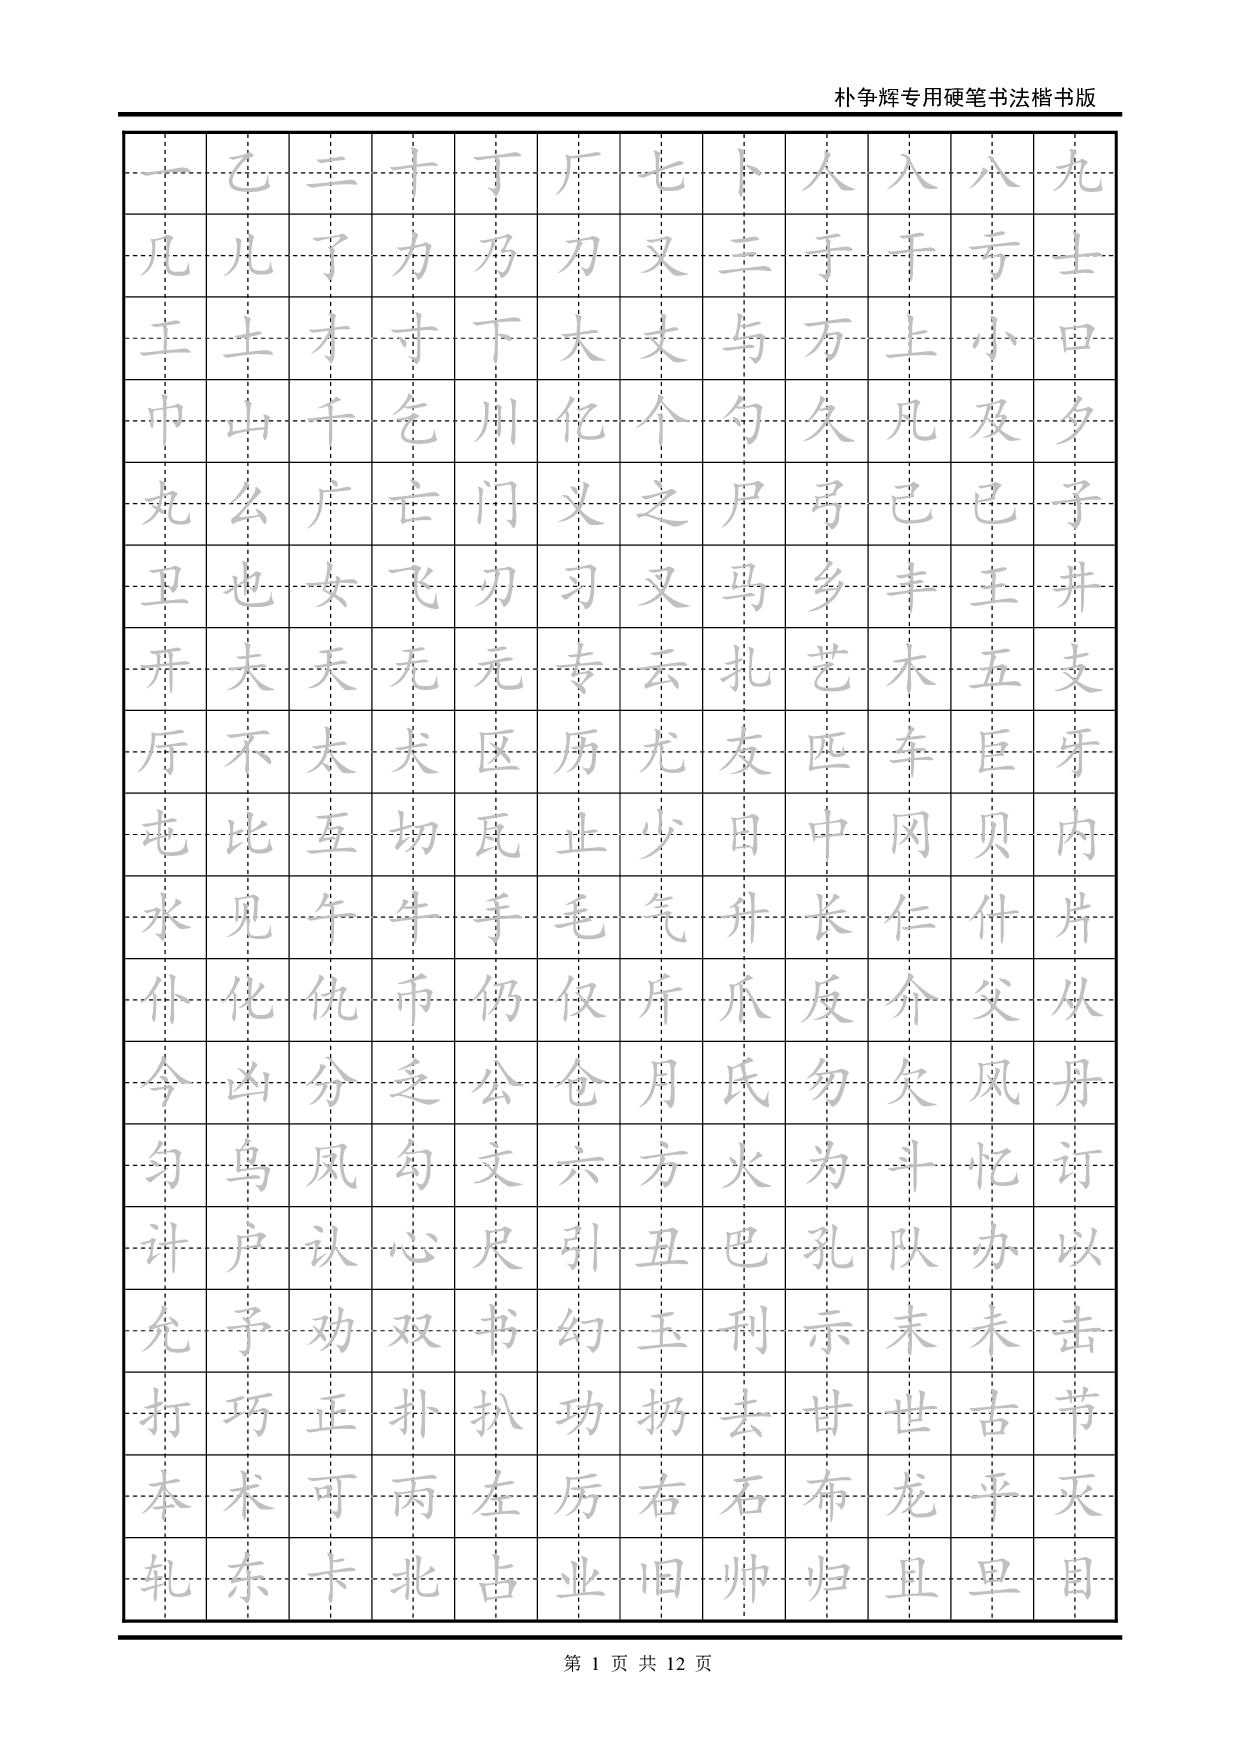 朴争辉专用硬笔书法楷书版
一乙二十丁厂七卜人入八九
几儿了力乃刀又三于干亏士
工土才寸下大丈与万上小口
巾山千乞川亿个勺久凡及夕
丸么广亡门义之尸弓己已子
卫也女飞刃习叉马乡丰王井
开夫天无元专云扎艺木五支
厅不太犬区历尤友匹车巨牙
屯比互切瓦止少日中冈贝内
水见午牛手毛气升长仁什片
仆化仇币仍仅斤爪反介父从
今凶分乏公仓月氏勿欠风丹
匀乌凤勾文六方火为斗忆订
计户认心尺引丑巴孔队办以
允予劝双书幻玉刊示末未击
打巧正扑扒功扔去甘世古节
本术可丙左厉右石布龙平灭
轧东卡北占业旧帅归且旦目
第 1 页 共 12 页